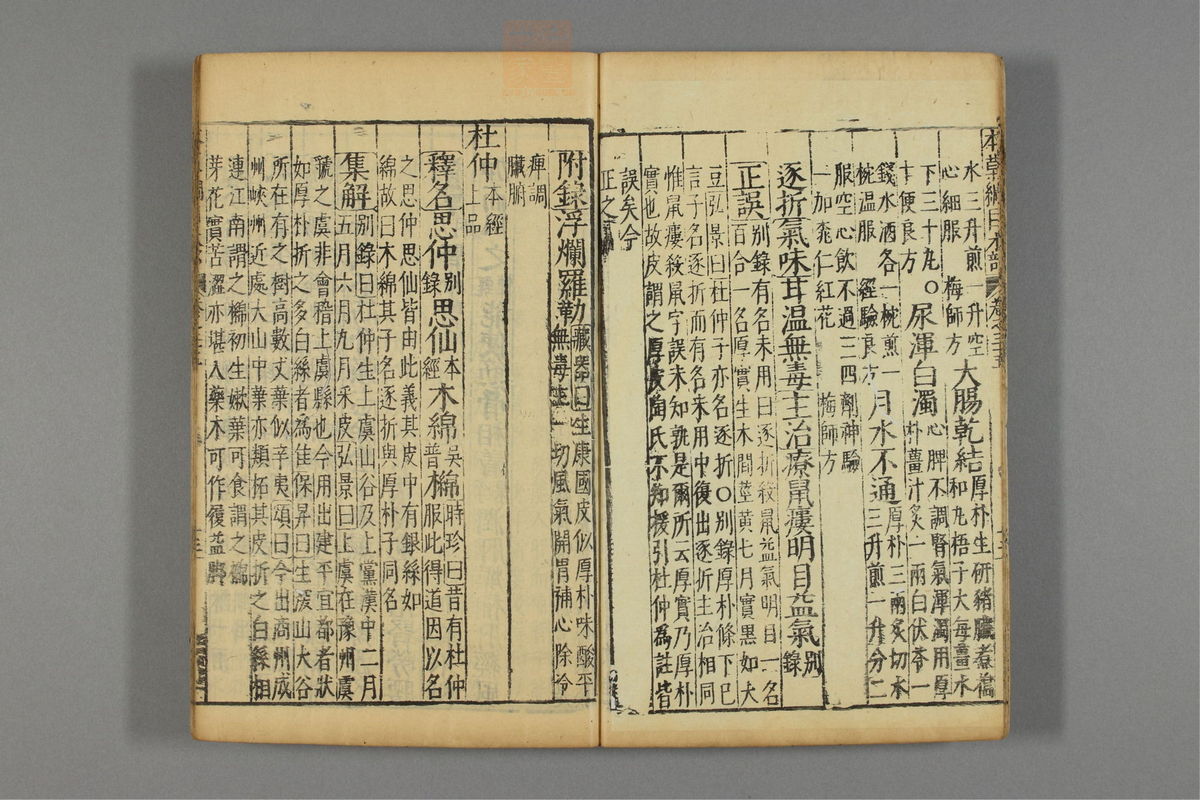 本草綱目木部
水三升煎一升空
心細服 梅師方
大腸乾結厚朴生研豬臟煮搗
和丸梧子大每薑水
下三十丸○尿渾白濁心脾不調腎氣渾濁用厚
朴薑汁炙一兩白伏苓一
錢水酒各一椀煎一
椀溫服 經驗良方
月水不通厚朴三兩炙切水
三升煎一升分二
服空心飲不過三四劑神驗
一加桃仁紅花 梅師方
逐折氣味甘溫無毒主治療鼠瘻明目益氣別錄
正誤別錄有名未用曰逐折殺鼠益氣明目一名
百合一名厚實生木間莖黃七月實黑如大
豆弘景曰杜仲子亦名逐折○別錄厚朴條下已
言子名逐折而有名未用中復出逐折主治相同
惟鼠瘻殺鼠字誤未知孰是爾所云厚實乃厚朴
實也故皮謂之厚皮陶氏不知援引杜仲為註皆
誤矣今
正之
附錄浮爛羅勒藏器曰生康國皮似厚朴味酸平
無毒主一切風氣開胃補心除冷
痺調
臟腑
杜仲本經
上品
釋名思仲別錄思仙本經木綿吳普檰時珍曰昔有杜仲
服此得道因以名
之思仲思仙皆由此義其皮中有銀絲如
綿故曰木綿其子名逐折與厚朴子同名
集解別錄曰杜仲生上虞山谷及上黨漢中二月
五月六月九月采皮弘景曰上虞在豫州虞
虢之虞非會稽上虞縣也今用出建平宜都者狀
如厚朴折之多白絲者為佳保昇曰生深山大谷
所在有之樹高數丈葉似辛夷頌曰今出商州成
州峽州近處大山中葉亦類柘其皮折之白絲相
連江南謂之檰初生嫩葉可食謂之檰
芽花實苦澀亦堪入藥木可作履益腳